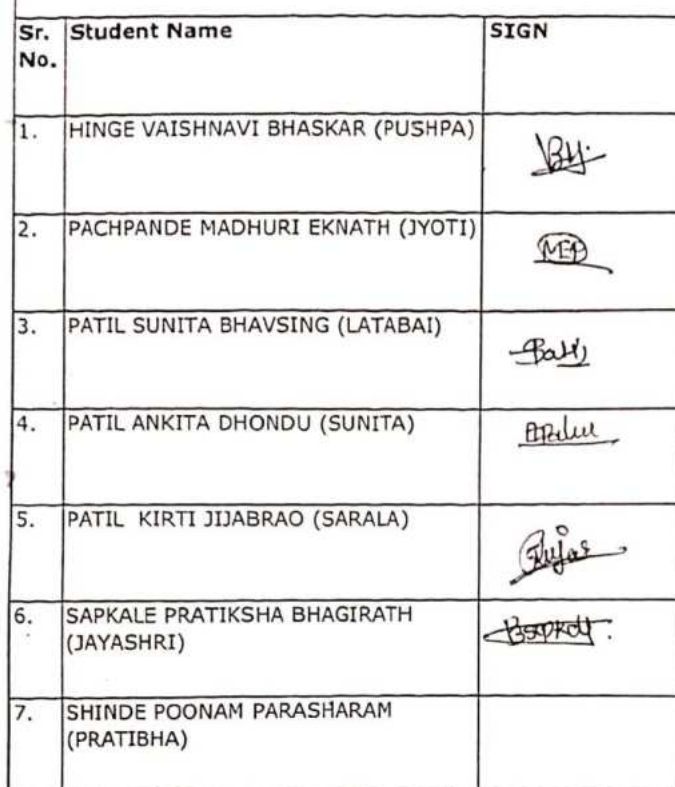 Sr. Student Name SIGN
No.
1. HINGE VAISHNAVI BHASKAR (PUSHPA)
2. PACHPANDE MADHURI EKNATH (JYOTI)
MEP
3. PATIL SUNITA BHAVSING (LATABAI)
4. PATIL ANKITA DHONDU (SUNITA)
5. PATIL KIRTI JIJABRAO (SARALA)
6. SAPKALE PRATIKSHA BHAGIRATH
(JAYASHRI)
7. SHINDE POONAM PARASHARAM
(PRATIBHA)